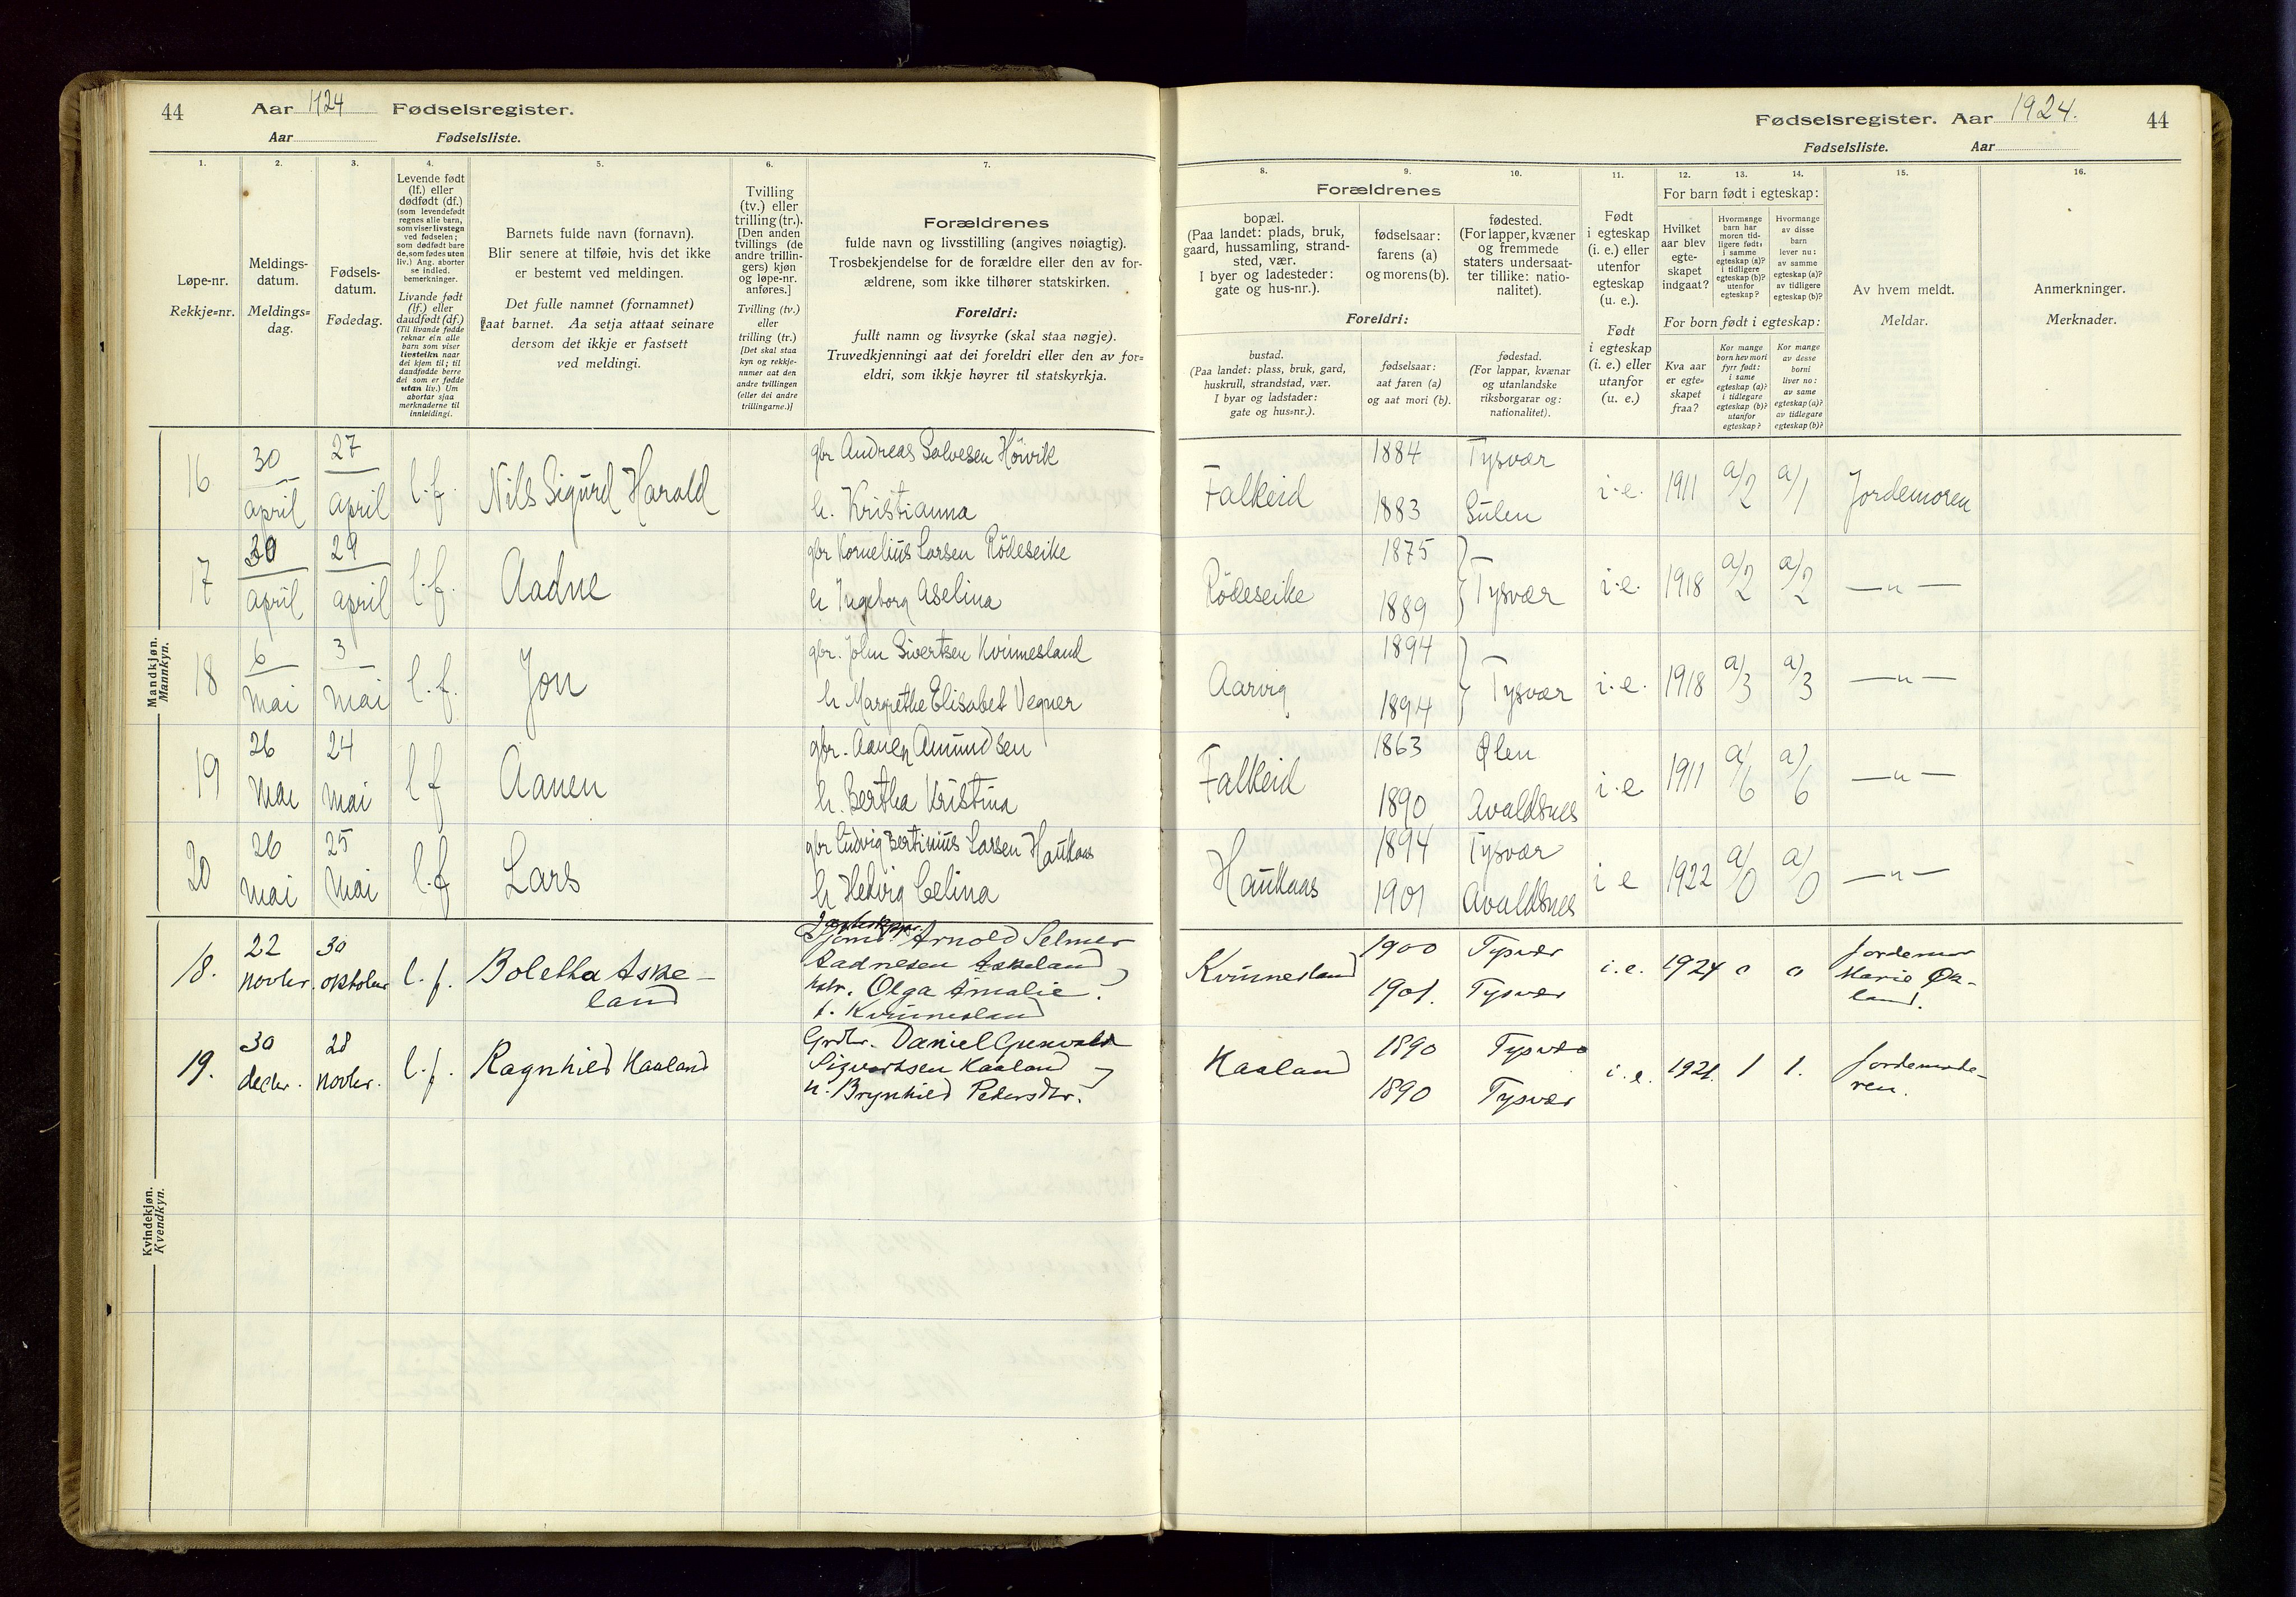 44
Aar 1924 Fødselsregister.
Aar Fødselsliste.
Fødselsregister. Aar 1924. 44
Fødselsliste. Aar
1.
Løpe-nr.
Rekkje=nr.
2.
Meldings-
datum.
Meldings=
dag.
3.
Fødsels-
datum.
Fødedag.
4.
Levende født
(lf.) eller
dødfødt (df.)
(som levendefødt
regnes alle barn,
som viser livstegn
ved fødselen;
som dødfødt bare
de, som fødes uten
liv.) Ang. aborter
se indled.
bemerkninger.
Livande født
(lf.) eller
daudfødt (df.)
(Til livande fødde
reknar ein alle
barn som viser
livsteikn naar
dei kjem til; til
daudfødde berre
dei som er fødde
utan liv.) Um
abortar sjaa
merknaderne til
innleidingi.
5.
Barnets fulde navn (fornavn).
Blir senere at tilføie, hvis det ikke
er bestemt ved meldingen.
Det fulle namnet (fornamnet)
aat barnet. Aa setja attaat seinare
dersom det ikkje er fastsett
ved meldingi.
6.
Tvilling
(tv.) eller
trilling (tr.).
[Den anden
tvillings (de
andre trillin-
gers) kjøn
og løpe-nr.
anføres.]
Tvilling (tv.)
eller
trilling (tr.)
[Det skal staa
kyn og rekkje-
numer aat den
andre tvillingen
(eller dei andre
trillingarne.)]
7.
Forældrenes
fulde navn og livsstilling (angives nøiagtig).
Trosbekjendelse for de forældre eller den av for-
ældrene, som ikke tilhører statskirken.
Foreldri:
fullt namn og livsyrke (skal staa nøgje).
Truvedkjenningi aat dei foreldri eller den av for=
eldri, som ikkje høyrer til statskyrkja.
8.
9.
10.
Forældrenes
bopæl.
(Paa landet: plads, bruk,
gaard, hussamling, strand-
sted, vær.
I byer og ladesteder:
gate og hus-nr.).
fødselsaar:
farens (a)
og morens (b).
fødested.
(For lapper, kvæner
og fremmede
staters undersaat-
ter tillike: natio-
nalitet).
Foreldri:
bustad.
(Paa landet: plass, bruk, gard,
huskrull, strandstad, vær.
I byar og ladstader:
gate og hus=nr.).
fødselsaar:
aat faren (a)
og aat mori (b).
fødestad.
(For lappar, kvænar
og utanlandske
riksborgarar og:
nationalitet).
11.
Født
i egteskap
(i. e.) eller
utenfor
egteskap
(u. e.).
Født
i egteskap
(i. e.) eller
utanfor
(u. e.)
12.
13.
14.
For barn født i egteskap:
Hvilket
aar blev
egte-
skapet
indgaat?
Hvormange
barn har
moren tid-
ligere født:
i samme
egteskap (a)?
i tidligere
egteskap (b)?
utenfor
egteskap?
Hvormange
av disse
barn
lever nu:
av samme
egteskap (a)?
av tidligere
egteskap (b)?
For born født i egteskap:
Kva aar
er egte=
skapet
fraa?
Kor mange
born hev mori
fyrr født:
i same
egteskap (a)?
i tidlegare
egteskap (b)?
utanfor
egteskap?
Kor mange
av desse
borni
liver no:
av same
egteskap (a)?
av tidlegare
egteskap (b)?
15.
Av hvem meldt.
Meldar.
16.
Anmerkninger.
Merknader.
Mandkjøn.
Mannkyn.
16 30 april 27 april l.f. Nils Sigurd Harald
gbr Andreas Salvesen Høivik
h. Kristianna
Falkeid 1884 Tysvær
1883 Sulen
i.e. 1911 a/2 a/1 Jordemoren
17 30 april 29 april l.f. Aadne
gbr Kornelius Larsen Rödeseike
h Ingeborg Aselina
Rödeseike 1875
1889 } Tysvær
i.e. 1918 a/2 a/2 —"—
18 6 mai 3 mai l.f. Jon
gbr. John Sivertsen Kvinnesland
h Margrethe Elisabet Vegner
Aarvig 1894
1894 } Tysvær
i.e. 1918 a/3 a/3 —"—
19 26 mai 24 mai l f Aanen
gbr. Aanen Amundsen
h. Bertha Kristina
Falkeid 1863 Ølen
1890 Avaldsnes
i.e 1911 a/6 a/6 —"—
20 26 mai 25 mai l.f Lars
gbr Ludvig Bertinius Larsen Haukaas
h Hedvig Celina
Haukaas 1894 Tysvær
1901 Avaldsnes
i e 1922 a/0 a/0 —"—
Kvindekjøn.
Kvendkyn.
18. 22 novbr. 30 oktober l. f. Boletha Aske-
land
Arnold Selmer
Aadnesen Askeland
hstr. Olga Amalie
f. Kvinnesland
Kvinnesland 1900 Tysvær
1901. Tysvær
i. e. 1924 0 0 Jordemor
Marie Øk-
land.
19. 30 decbr. 28 novbr. l. f. Ragnhild Kaaland
Grdbr. Daniel Gunvald
Sigvartsen Kaaland
h. Brynhild Pedersdtr.
Kaaland 1890 Tysvær
1890 Tysvær
i. e. 1921. 1 1. Jordemode-
ren.